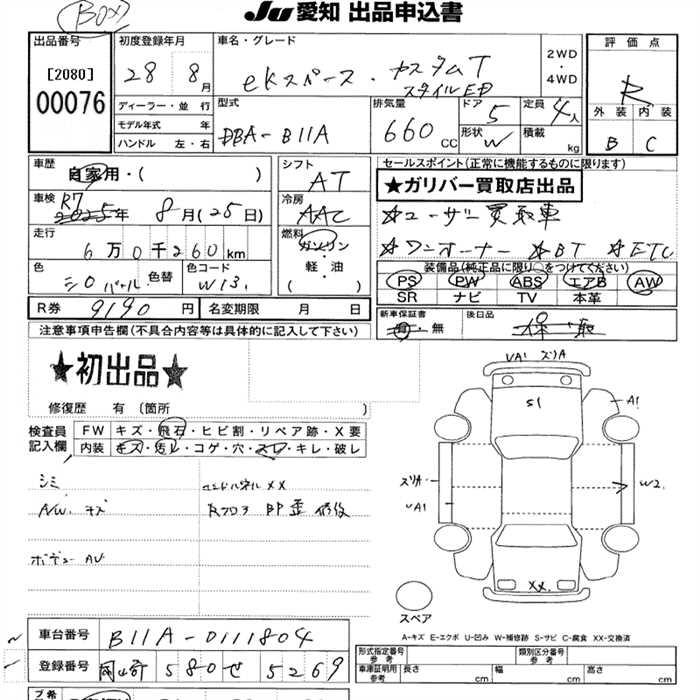 BOX
Ju 愛知 出品申込書
出品番号 初度登録年月 車名・グレード 2WD・4WD 評価点
[2080] 28 8月 ekスペース・カスタムT
00076 スタイルED R
ディーラー・並行 型式 排気量 ドア 5 定員 4人 外装 内装
モデル年式 年 DBA-B11A 660cc 形状 W 積載 kg B C
ハンドル 左・右
車歴 自家用・( ) シフト AT セールスポイント(正常に機能するものに限ります)
車検 R7 2025年 8月(25日) 冷房 AAC ★ガリバー買取店出品
☆ユーザー買取車
走行 6万0千260km 燃料 ガソリン・軽・油 ☆ワンオーナー ☆BT ☆ETC
装備品(純正品に限り○をつけてください)
色 シロパール 色替 色コード W13 PS PW ABS エアB AW
SR ナビ TV 本革
R券 9190円 名変期限 月 日 新車保証書 有・無 後日品 保・取
注意事項申告欄(不具合内容等は具体的に記入して下さい)
★初出品★
修復歴 有 [箇所 ]
検査員記入欄 FW キズ・飛石・ヒビ割・リペア跡・X要
内装 キズ・汚レ・コゲ・穴・スレ・キレ・破レ
シミ エンドパネル XX
AW キズ Rフロア 凹歪 修復
ボデー AU
UA1 ズリA
S1
A1
ズリA
UA1
W2
XX
スペア
A-キズ E-エクボ U-凹み W-補修跡 S-サビ C-腐食 XX-交換済
車台番号 B11A-0111804
登録番号 岡山 580 せ 5269
形式指定番号 参考 類別区分番号 参考
車庫証明用 参考 長さ cm 幅 cm 高さ cm